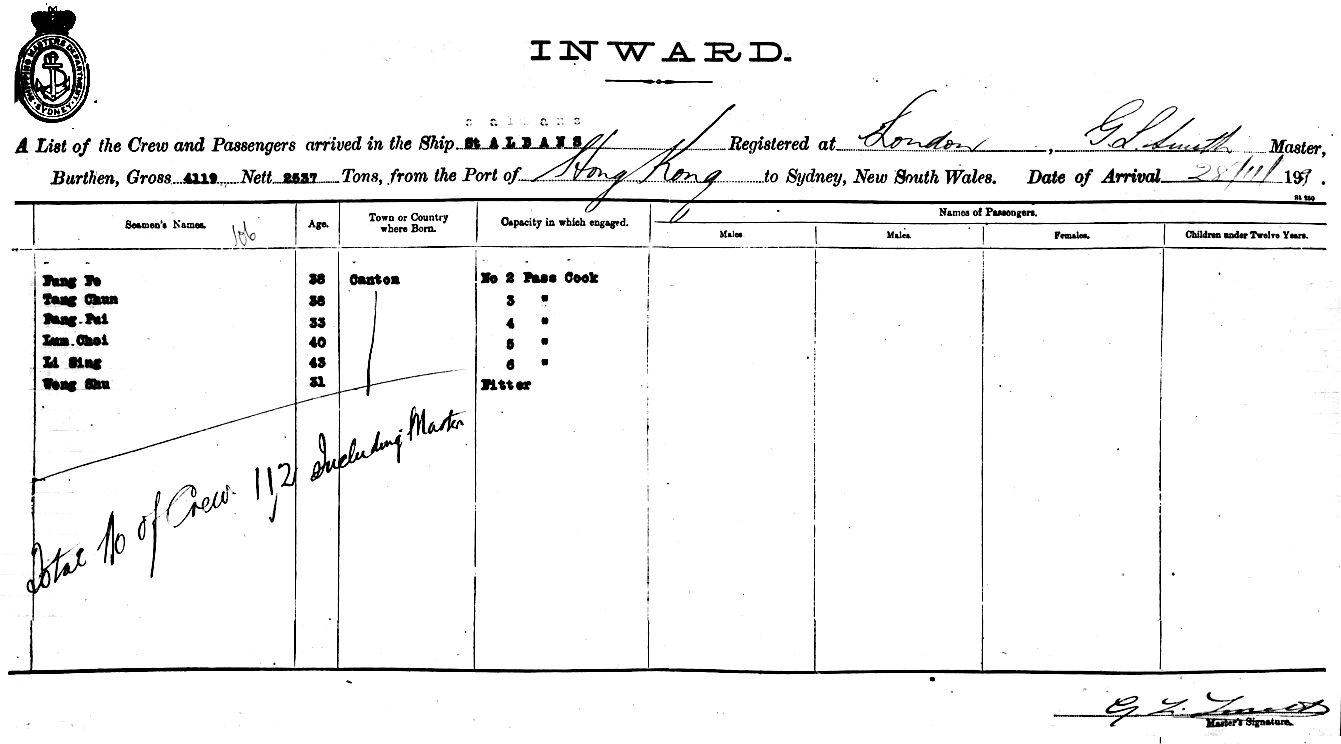 SHIPPING MASTERS DEPARTMENT SYDNEY
INWARD.
s a l b a n s
A List of the Crew and Passengers arrived in the Ship St ALBANS Registered at London, G. L. Smith Master,
Burthen, Gross 4119 Nett 2537 Tons, from the Port of Hong Kong to Sydney, New South Wales. Date of Arrival 28/11/ 19
Seamen's Names. 106 Age. Town or Country where Born. Capacity in which engaged. Names of Passengers.
Males Males. Females. Children under Twelve Years.
Fung Fo 38 Canton No 2 Pass Cook
Tang Chun 38 3 "
Pang Pui 33 4 "
Lum Choi 40 5 "
Li Sing 43 6 "
Wong Shu 31 Fitter
Total No of Crew 112 Including Master
Master's Signature.